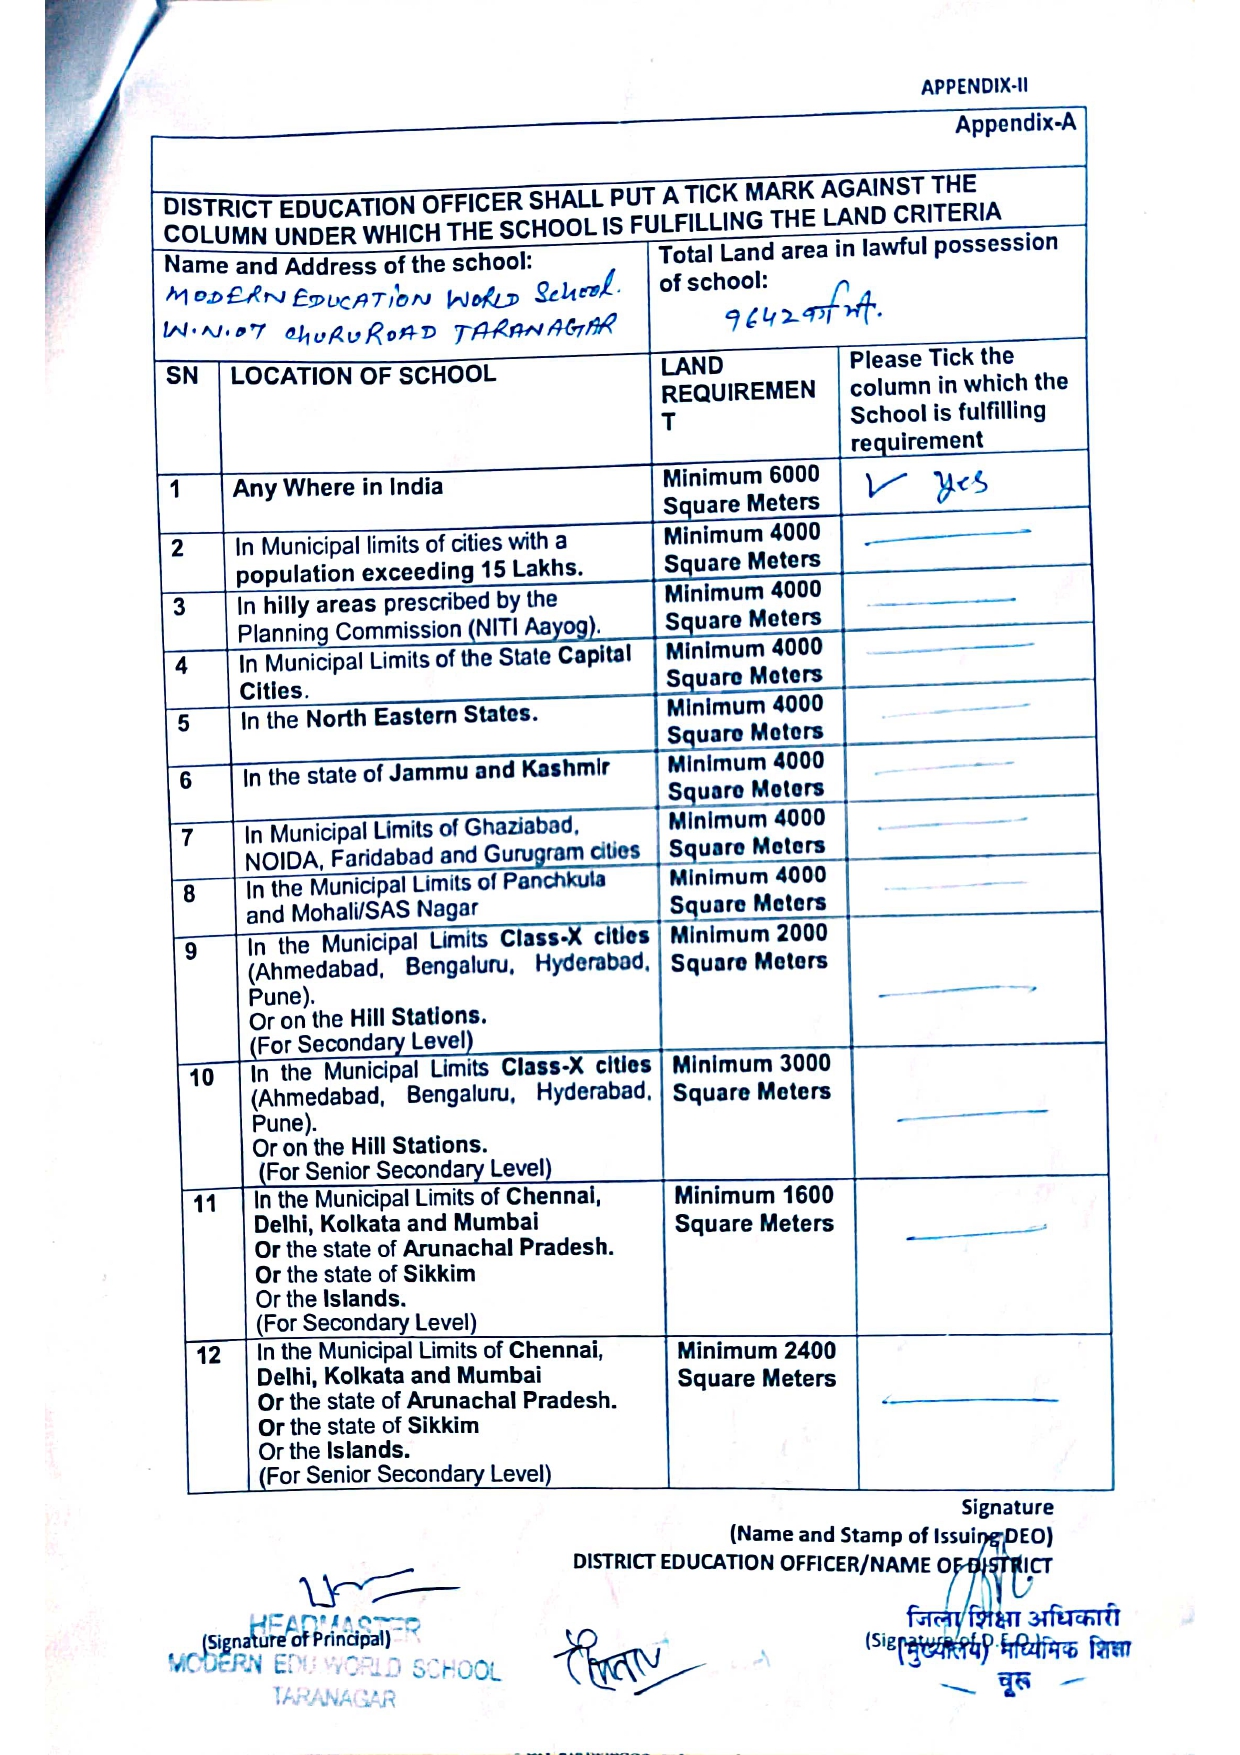 APPENDIX-II
Appendix-A
DISTRICT EDUCATION OFFICER SHALL PUT A TICK MARK AGAINST THE
COLUMN UNDER WHICH THE SCHOOL IS FULFILLING THE LAND CRITERIA
Name and Address of the school:
MODERN EDUCATION WORLD School.
W.N.07 CHURU ROAD TARANAGAR
Total Land area in lawful possession
of school:
9642 वर्ग मी.
SN
LOCATION OF SCHOOL
LAND
REQUIREMEN
T
Please Tick the
column in which the
School is fulfilling
requirement
1
Any Where in India
Minimum 6000
Square Meters
✓ Yes
2
In Municipal limits of cities with a
population exceeding 15 Lakhs.
Minimum 4000
Square Meters
3
In hilly areas prescribed by the
Planning Commission (NITI Aayog).
Minimum 4000
Square Meters
4
In Municipal Limits of the State Capital
Cities.
Minimum 4000
Square Meters
5
In the North Eastern States.
Minimum 4000
Square Meters
6
In the state of Jammu and Kashmir
Minimum 4000
Square Meters
7
In Municipal Limits of Ghaziabad,
NOIDA, Faridabad and Gurugram cities
Minimum 4000
Square Meters
8
In the Municipal Limits of Panchkula
and Mohali/SAS Nagar
Minimum 4000
Square Meters
9
In the Municipal Limits Class-X cities
(Ahmedabad, Bengaluru, Hyderabad,
Pune).
Or on the Hill Stations.
(For Secondary Level)
Minimum 2000
Square Meters
10
In the Municipal Limits Class-X cities
(Ahmedabad, Bengaluru, Hyderabad,
Pune).
Or on the Hill Stations.
(For Senior Secondary Level)
Minimum 3000
Square Meters
11
In the Municipal Limits of Chennai,
Delhi, Kolkata and Mumbai
Or the state of Arunachal Pradesh.
Or the state of Sikkim
Or the Islands.
(For Secondary Level)
Minimum 1600
Square Meters
12
In the Municipal Limits of Chennai,
Delhi, Kolkata and Mumbai
Or the state of Arunachal Pradesh.
Or the state of Sikkim
Or the Islands.
(For Senior Secondary Level)
Minimum 2400
Square Meters
Signature
(Name and Stamp of Issuing DEO)
DISTRICT EDUCATION OFFICER/NAME OF DISTRICT
HEADMASTER
(Signature of Principal)
MODERN EDU WORLD SCHOOL
TARANAGAR
जिला शिक्षा अधिकारी
(Signature of D.E.O.)
(मुख्यालय) माध्यमिक शिक्षा
चूरू